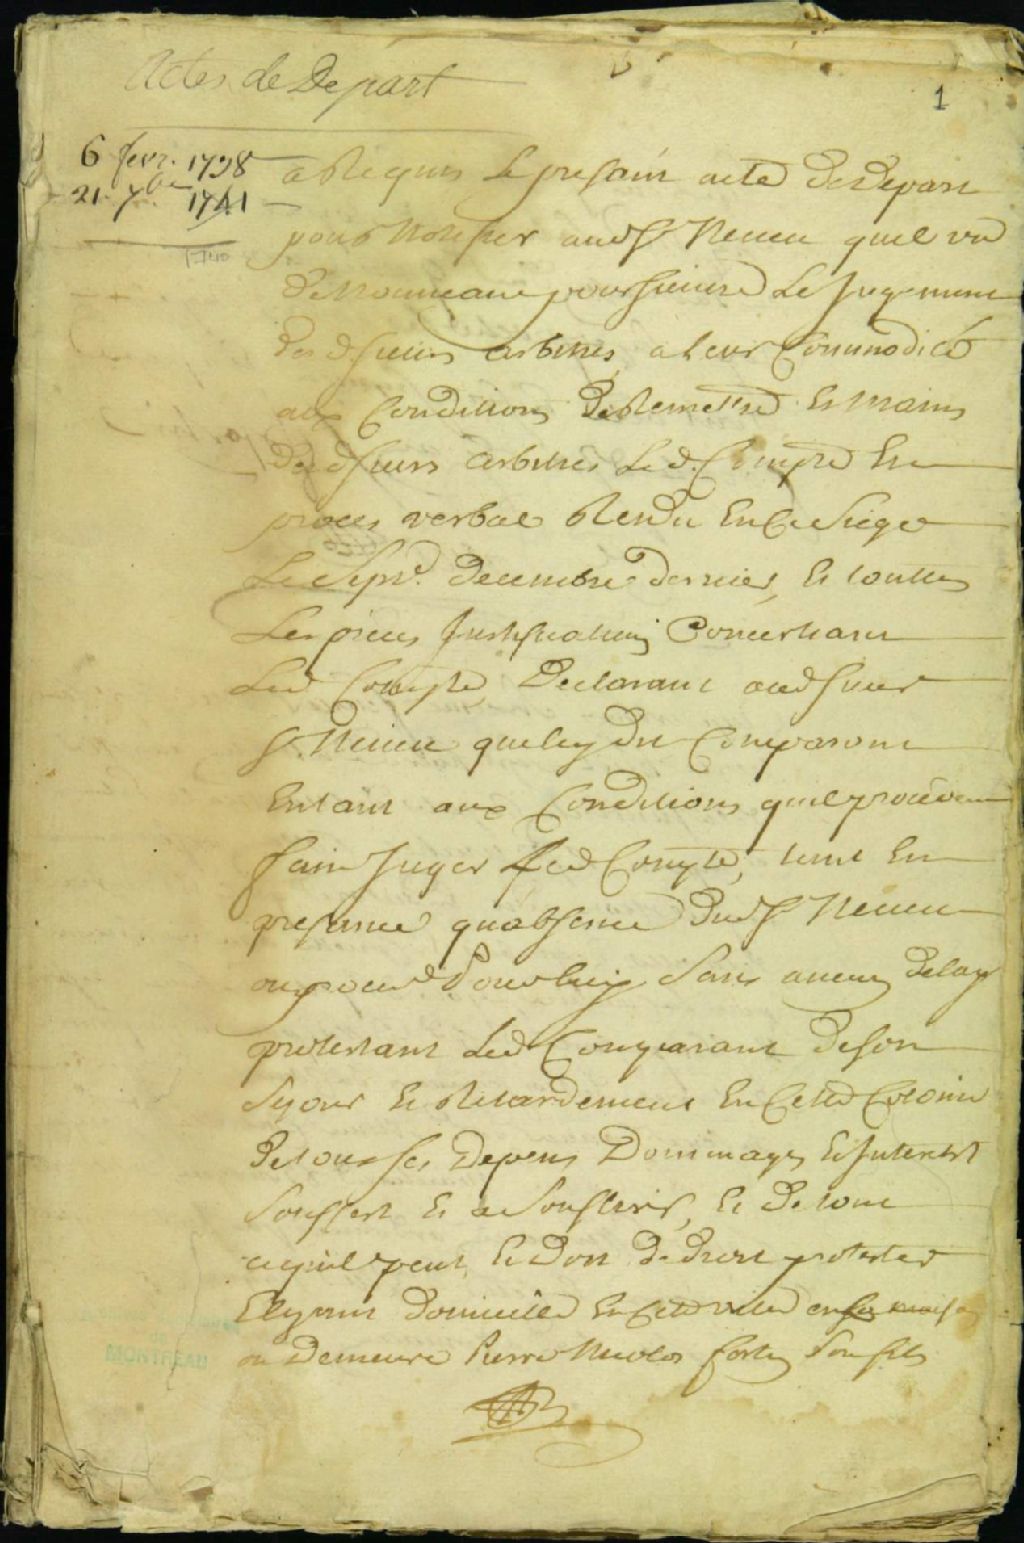 Actes de Depart
1
6 fevr. 1738
21. 7bre 1741
a Requis Le present acte de Depart
pour Notifier aud. Sr Neveu quil va
de Nouveau poursuivre Le Jugement
des d. sieurs arbitres a leur Commodité
aux Conditions de Remettre Es Mains
des d. sieurs arbitres Led. Compte En
proces verbal Rendu En Ce Siege
Le Sept. Decembre dernier, Et touttes
Les pieces Justificatives Concernant
Led Compte, Declarant aud sieur
Sr. Neveu que led Comparant
Entant aux Conditions
faire Juger Led Compte, tant En
presence quabsence Dud Sr Neveu
ou pour Luy Sans aucun delay
protestant Led Comparant de son
Sejour Et Retardement En Cette Colonie
de tous ses Depens Dommages Et Interest
Souffert Et a Souffrir, Et De tout
ce quil peut Et Doit De droit protester
Elisant Domicille En Cette ville en sa maison
ou Demeure Pierre Nicolas fortin Son fils
MONTREAL